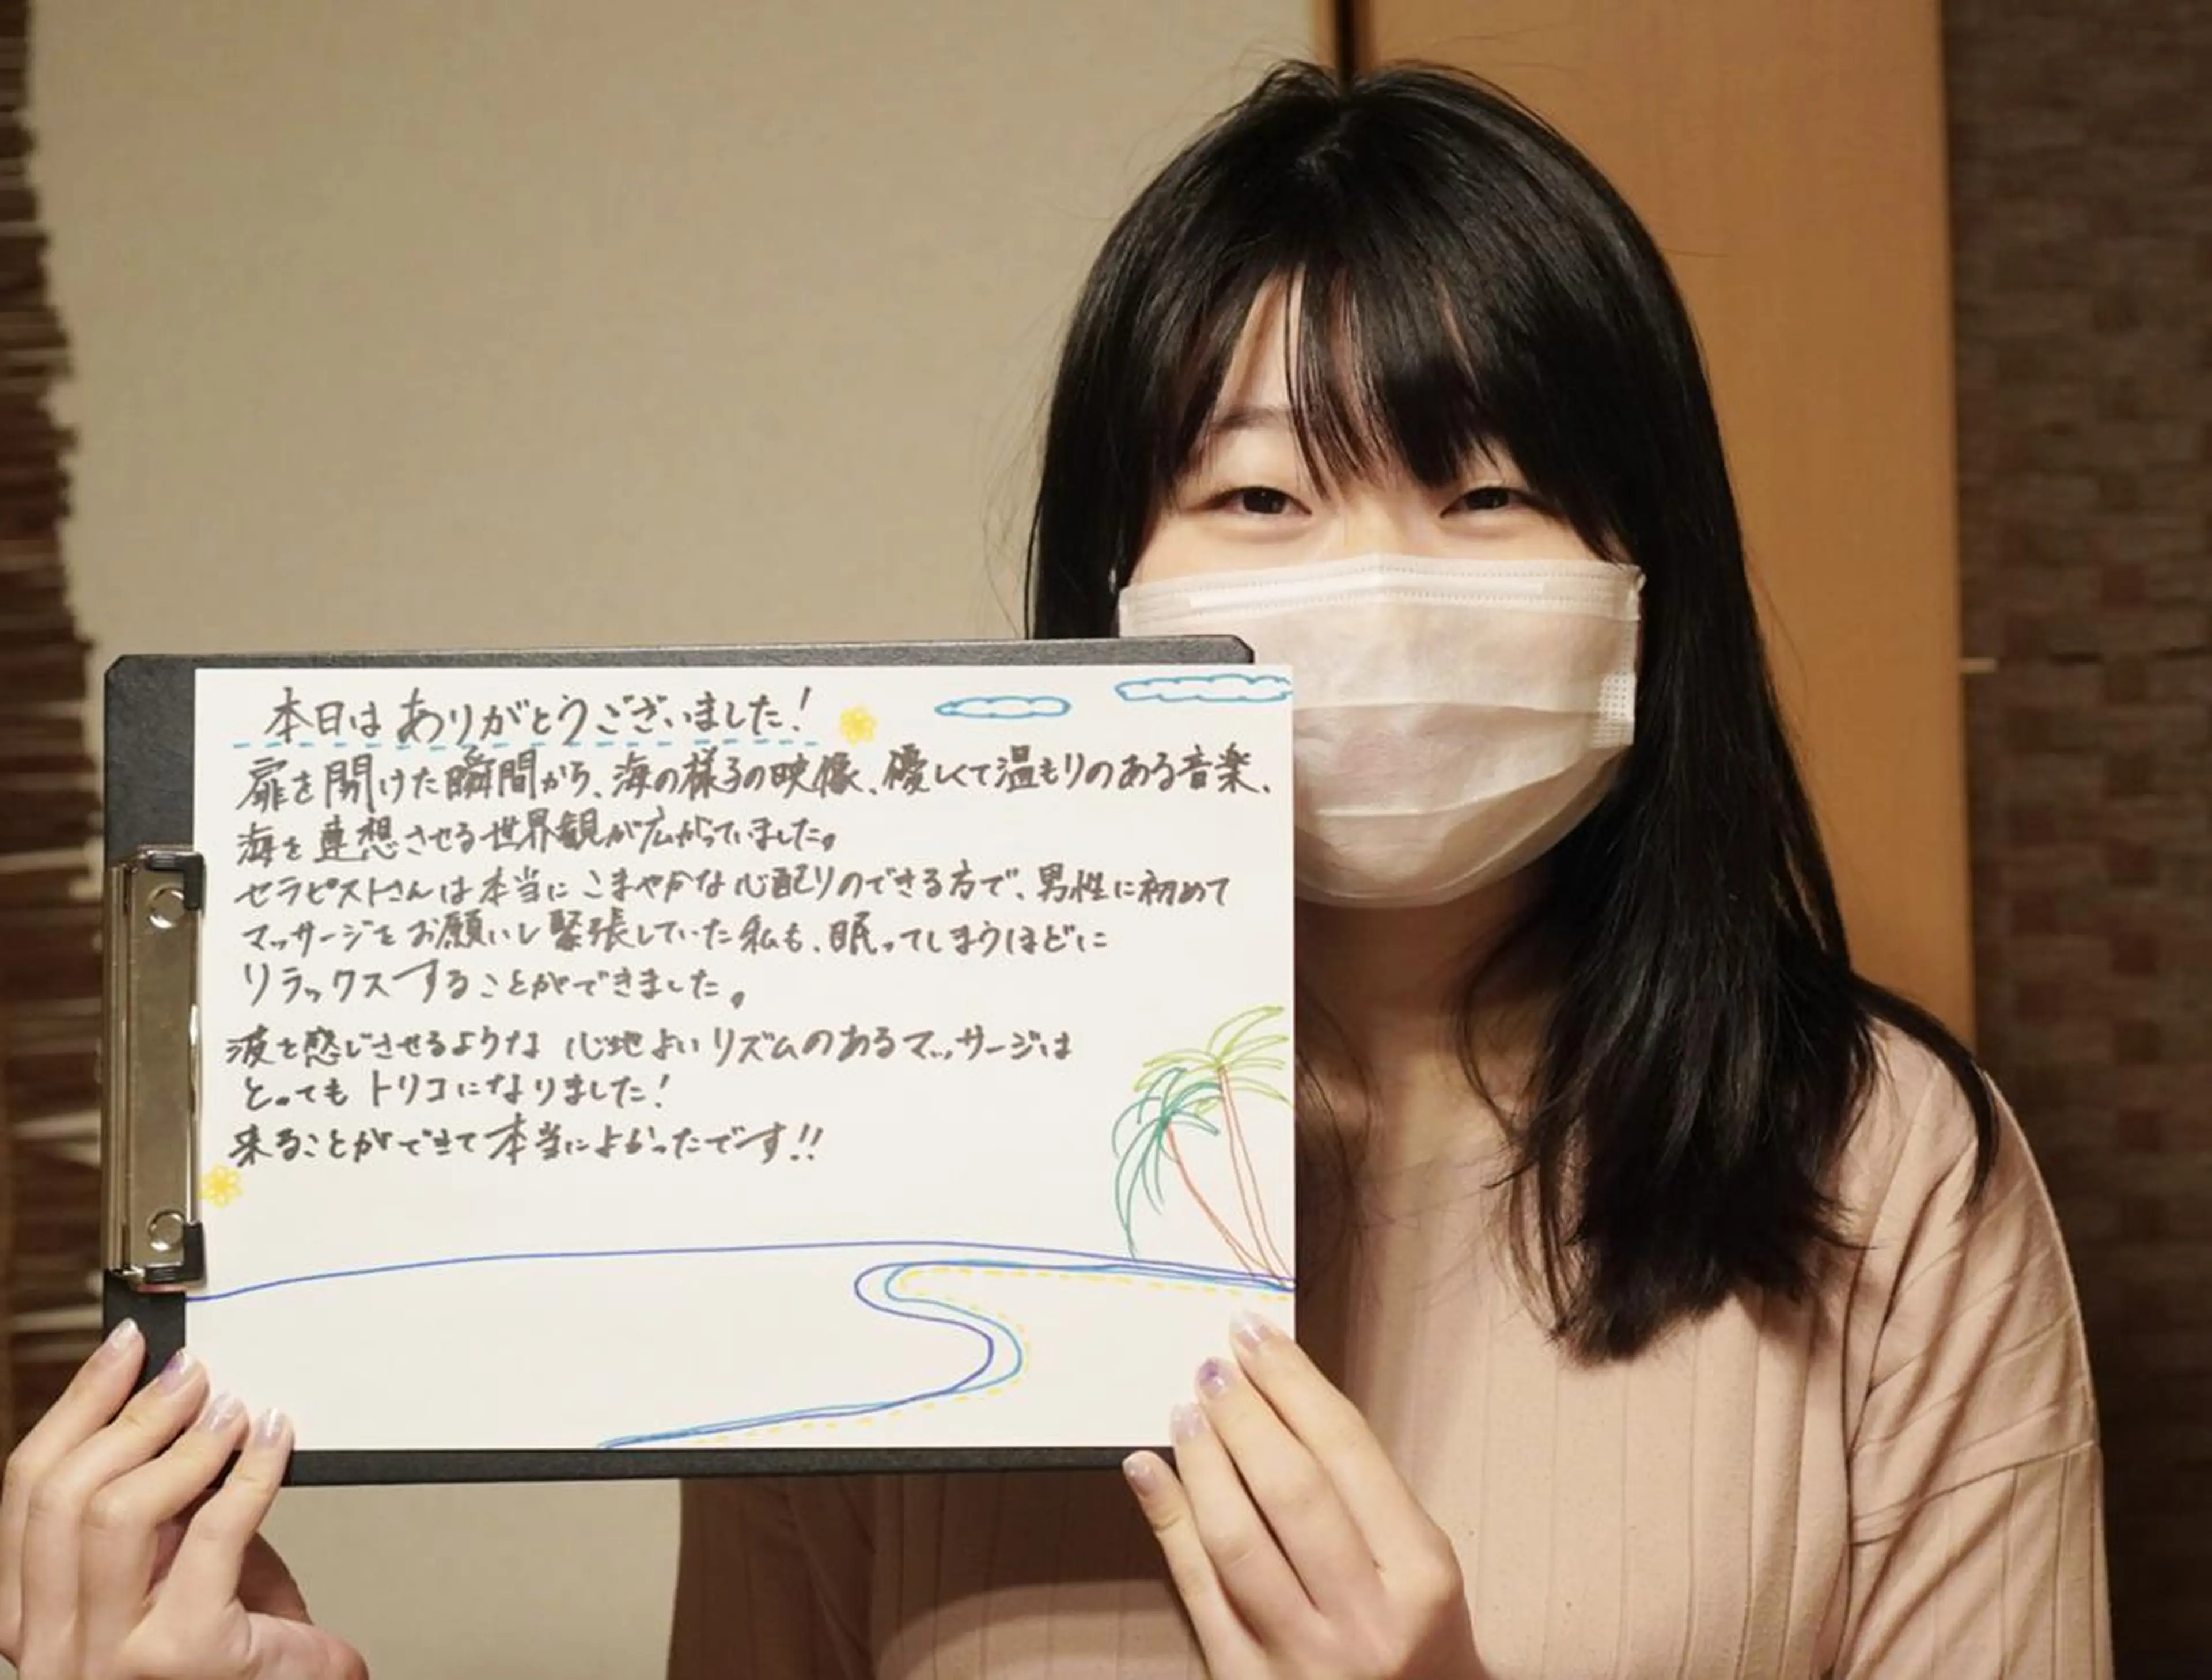 本日はありがとうございました!
扉を開けた瞬間から、海の様子の映像、優しくて温もりのある音楽、
海を連想させる世界観が広がっていました。
セラピストさんは本当にこまやかな心配りのできる方で、男性に初めて
マッサージをお願いし緊張していた私も、眠ってしまうほどに
リラックスすることができました。
波を感じさせるような 心地よいリズムのあるマッサージは
とってもトリコになりました!
来ることができて本当によかったです!!